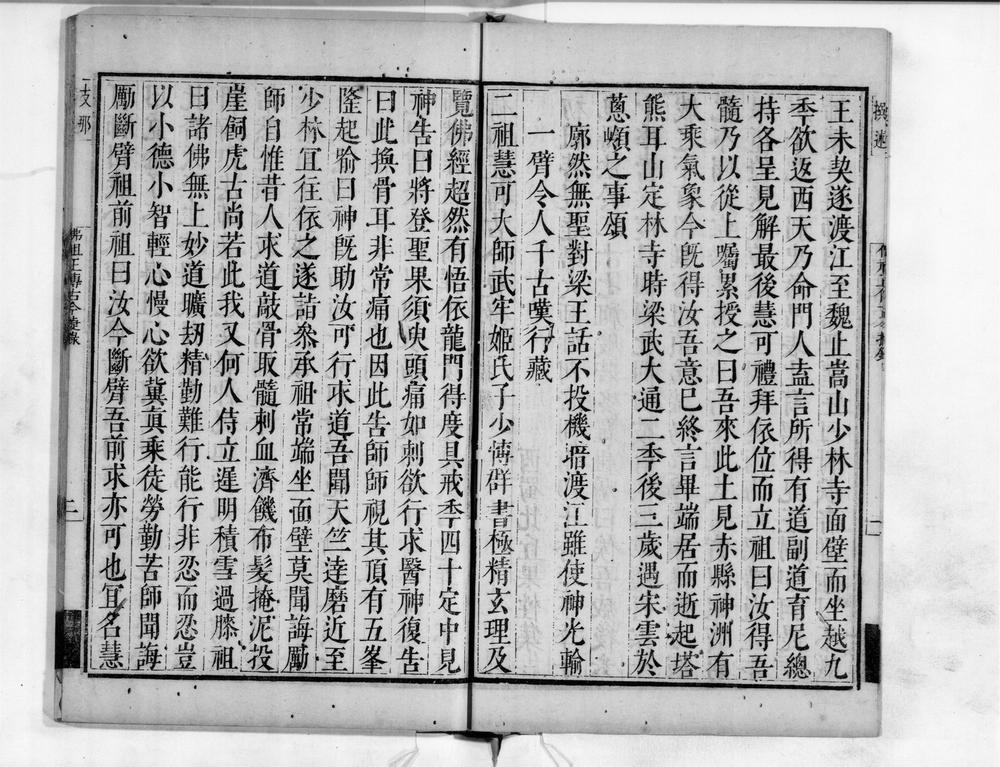 王未契遂渡江至魏止嵩山少林寺面壁而坐越九
季欲返西天乃命門人盍言所得有道副道育尼緫
持各呈見解最後慧可禮拜依位而立祖曰汝得吾
髓乃以從上囑累授之曰吾來此土見赤縣神洲有
大乘氣象今旣得汝吾意已終言畢端居而逝起塔
熊耳山定林寺時梁武大通二季後三歲遇宋雲於
蔥嶺之事頌
廓然無聖對梁王話不投機暗渡江雖使神光輪
一臂令人千古嘆行藏
二祖慧可大師武牢姬氏子少愽群書極精玄理及
覽佛經超然有悟依龍門得度具戒季四十定中見
神告曰將登聖果須臾頭痛如刺欲行求醫神復告
曰此換骨耳非常痛也因此告師師視其頂有五峯
隆起喻曰神旣助汝可行求道吾聞天竺達磨近至
少林冝往依之遂詣叅承祖常端坐面壁莫聞誨勵
師自惟昔人求道敲骨取髓刺血濟饑布髮掩泥投
崖飼虎古尚若此我又何人侍立遲明積雪過膝祖
曰諸佛無上妙道曠刼精勤難行能行非忍而忍豈
以小德小智輕心慢心欲冀真乘徒勞勤苦師聞誨
勵斷臂祖前祖曰汝今斷臂吾前求亦可也冝名慧
支那
佛祖正傳古今捷錄
二